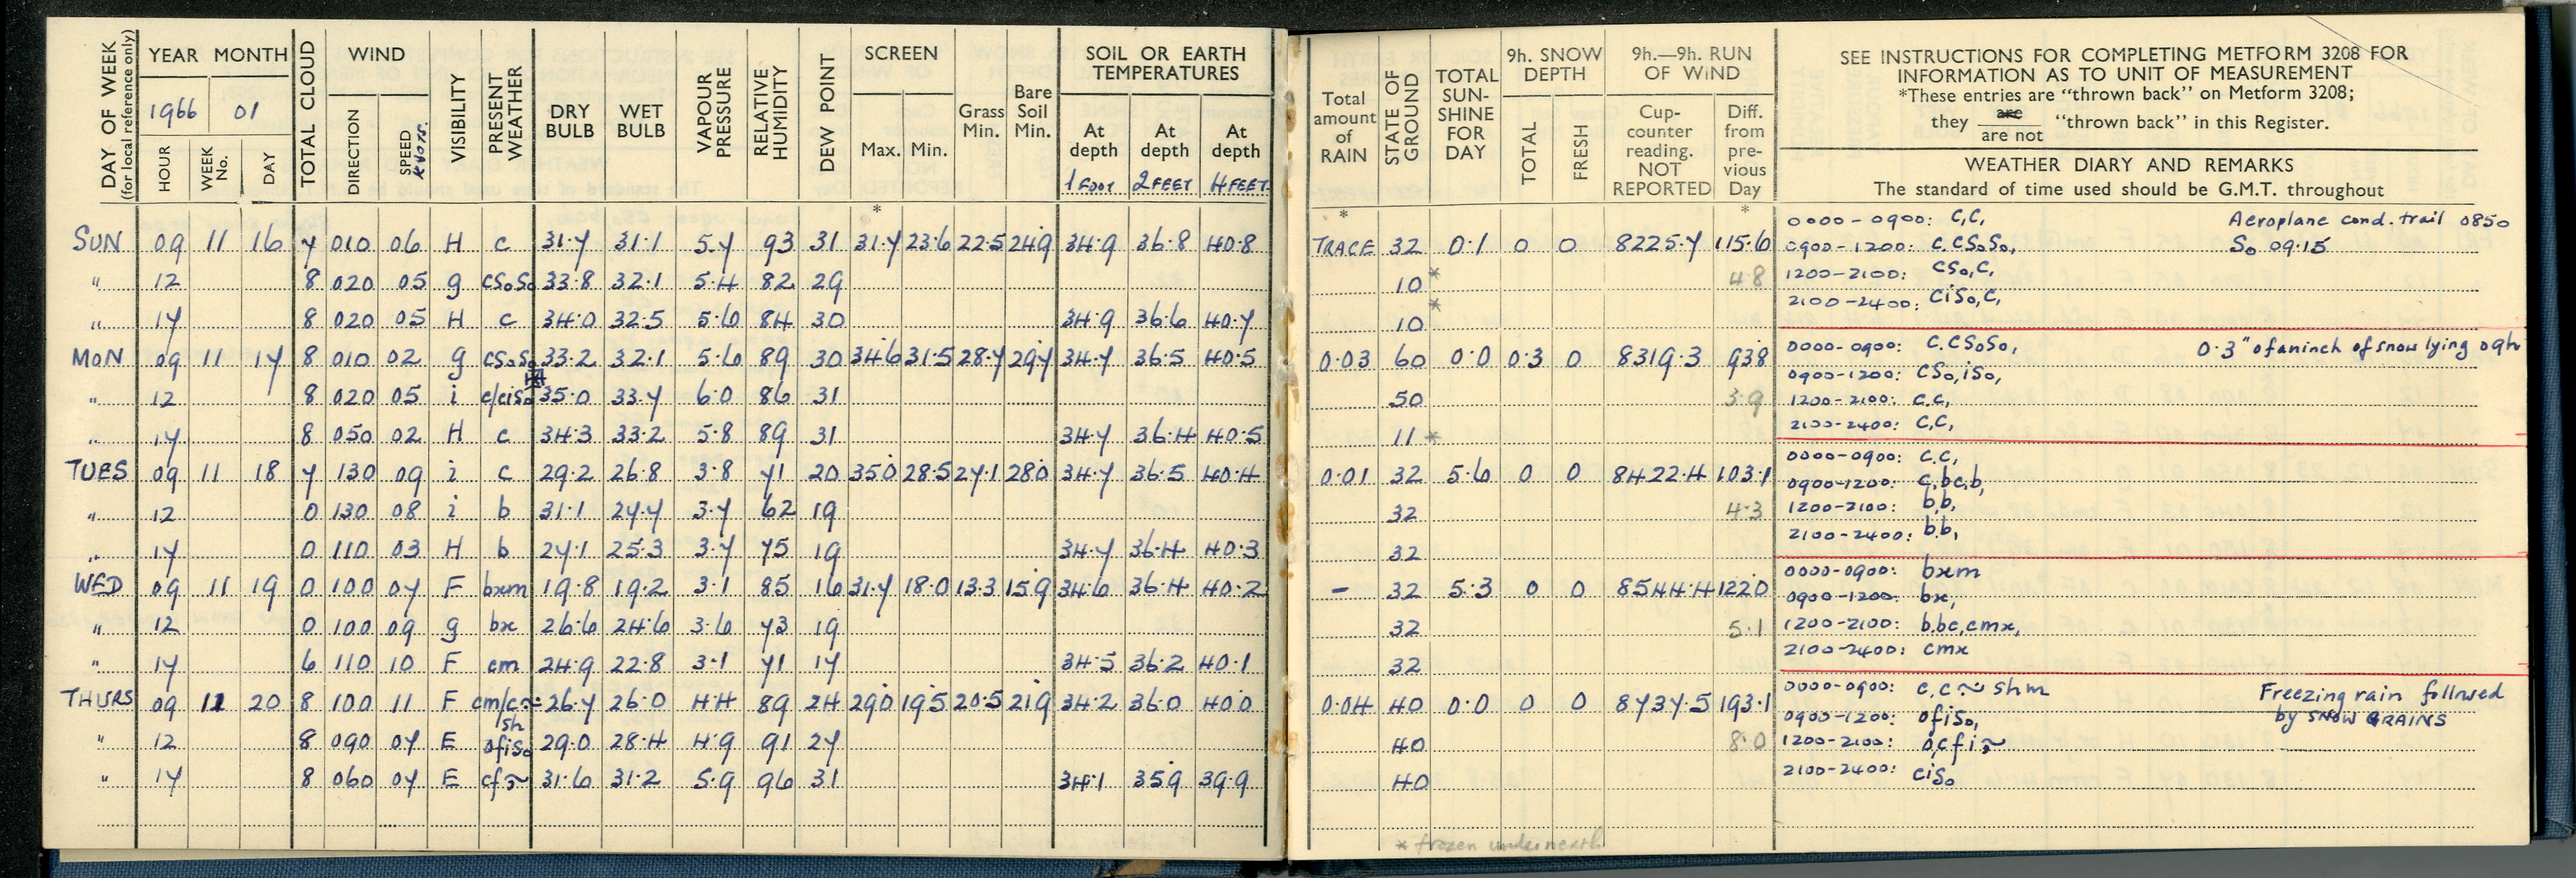 DAY OF WEEK
(for local reference only)
YEAR MONTH
1966 01
HOUR WEEK No. DAY
TOTAL CLOUD
WIND
DIRECTION SPEED KNOTS.
VISIBILITY
PRESENT WEATHER
DRY BULB
WET BULB
VAPOUR PRESSURE
RELATIVE HUMIDITY
DEW POINT
SCREEN
Max. Min.
Grass Min.
Bare Soil Min.
SOIL OR EARTH TEMPERATURES
At depth At depth At depth
1 FOOT 2 FEET 4 FEET
Total amount of RAIN
STATE OF GROUND
TOTAL SUN-SHINE FOR DAY
9h. SNOW DEPTH
TOTAL FRESH
9h.—9h. RUN OF WIND
Cup-counter reading. NOT REPORTED
Diff. from pre-vious Day
SEE INSTRUCTIONS FOR COMPLETING METFORM 3208 FOR
INFORMATION AS TO UNIT OF MEASUREMENT
*These entries are "thrown back" on Metform 3208;
they are / are not "thrown back" in this Register.
WEATHER DIARY AND REMARKS
The standard of time used should be G.M.T. throughout
* * *
SUN 09 11 16 7 010 06 H c 31.7 31.1 5.7 93 31 31.7 23.6 22.5 24.9 34.9 36.8 40.8 TRACE 32 0.1 0 0 8225.7 115.6
0000-0900: c,c, Aeroplane cond. trail 0850
0900-1200: c.cSoSo, So 09.15
" 12 8 020 05 g cSoSo 33.8 32.1 5.4 82 29 10 * 4.8
1200-2100: cSo,c,
" 17 8 020 05 H c 34.0 32.5 5.6 84 30 34.9 36.6 40.7 10 *
2100-2400: ciSo,c,
MON 09 11 17 8 010 02 g cSoSo 33.2 32.1 5.6 89 30 34.6 31.5 28.7 29.7 34.7 36.5 40.5 0.03 60 0.0 0.3 0 8319.3 93.8
0000-0900: c.cSoSo, 0.3" of an inch of snow lying 09h
0900-1200: cSo,iSo,
" 12 8 020 05 i c/ciSo 35.0 33.7 6.0 86 31 50 3.9
1200-2100: c.c,
" 17 8 050 02 H c 34.3 33.2 5.8 89 31 34.7 36.4 40.5 11 *
2100-2400: c,c,
TUES 09 11 18 7 130 09 i c 29.2 26.8 3.8 71 20 35.0 28.5 27.1 28.0 34.7 36.5 40.4 0.01 32 5.6 0 0 8422.4 103.1
0000-0900: c.c,
0900-1200: c,bc,b,
" 12 0 130 08 i b 31.1 27.7 3.7 62 19 32 4.3
1200-2100: b,b,
" 17 0 110 03 H b 27.1 25.3 3.7 75 19 34.7 36.4 40.3 32
2100-2400: b.b,
WED 09 11 19 0 100 07 F bxm 19.8 19.2 3.1 85 16 31.7 18.0 13.3 15.9 34.6 36.4 40.2 - 32 5.3 0 0 8544.4 122.0
0000-0900: bxm
0900-1200: bx,
" 12 0 100 09 g bx 26.6 24.6 3.6 73 19 32 5.1
1200-2100: b.bc,cmx,
" 17 6 110 10 F cm 24.9 22.8 3.1 71 17 34.5 36.2 40.1 32
2100-2400: cmx
THURS 09 11 20 8 100 11 F cm/c sh 26.7 26.0 4.4 89 24 29.0 19.5 20.5 21.9 34.2 36.0 40.0 0.04 40 0.0 0 0 8737.5 193.1
0000-0900: c,c~shm Freezing rain followed
0900-1200: ofiSo, by SNOW GRAINS
" 12 8 090 07 E ofiSo 29.0 28.4 4.9 91 27 40 8.0
1200-2100: o,cfi~
" 17 8 060 07 E cf~ 31.6 31.2 5.9 96 31 34.1 35.9 39.9 40
2100-2400: ciSo
* frozen underneath